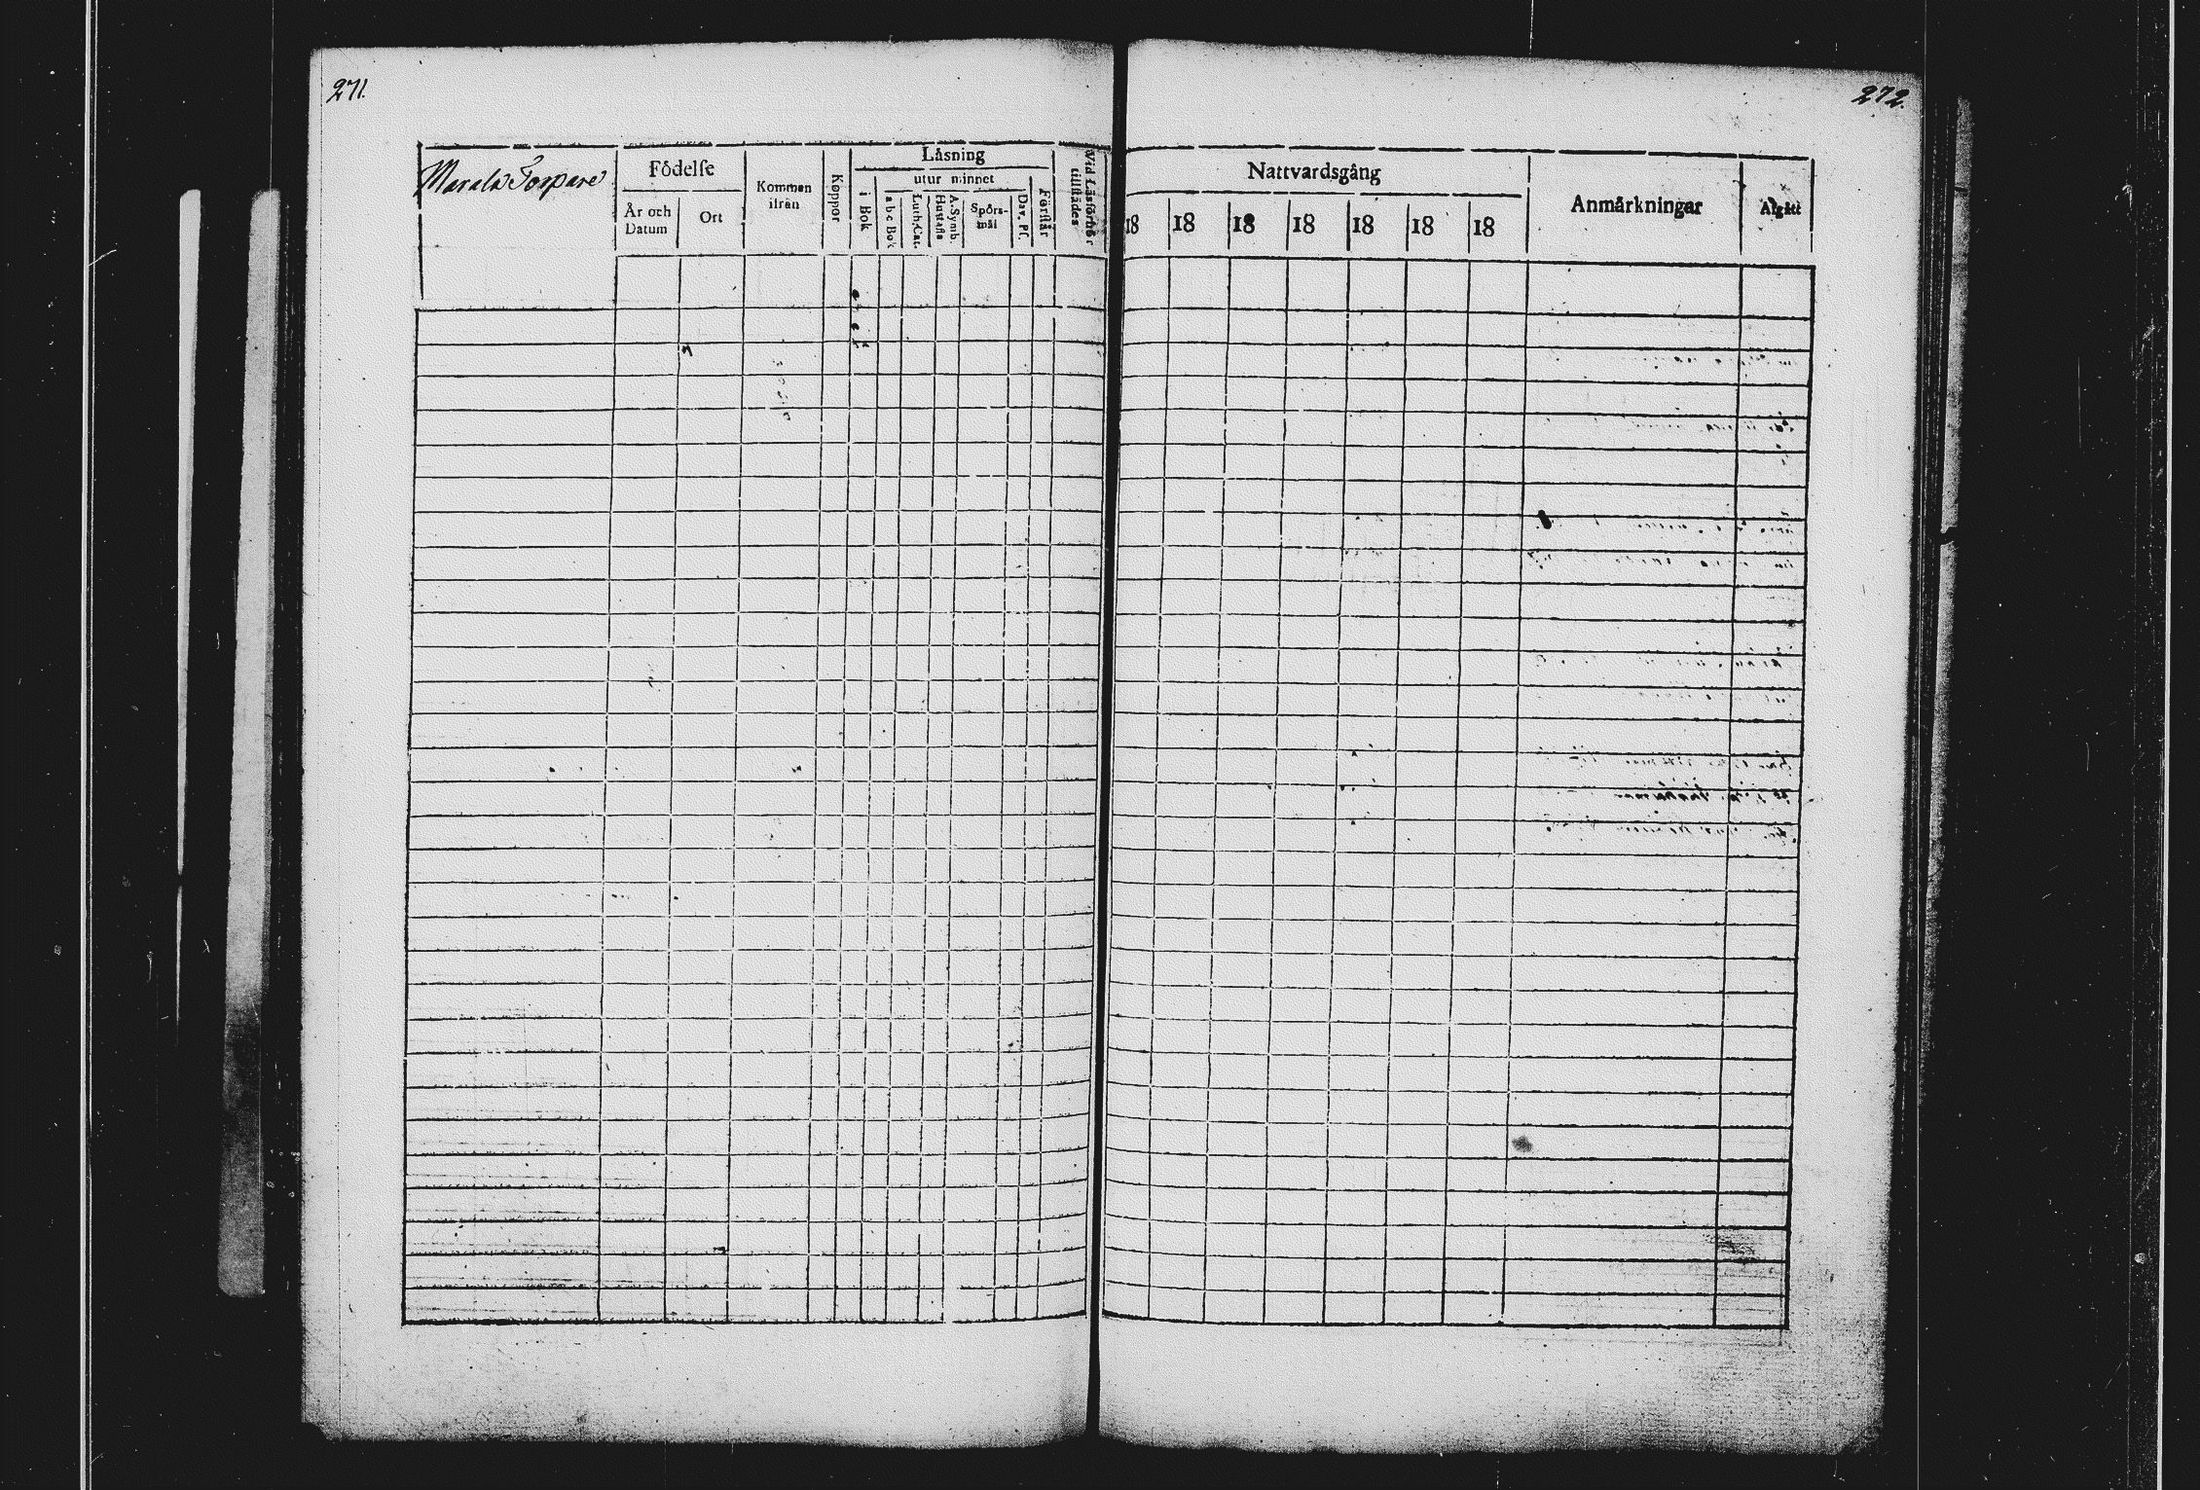 271.
272.
Marala Torpare
Födelse
År och Datum
Ort
Kommen ifrån
Koppor
Läsning
i Bok
utur minnet
a b c Bok
Luth. Cat.
Hustafla
A. Symb.
Spörsmål
Dav. Ps.
Förstår
Vid Läsförhör tillstädes
Nattvardsgång
18 18 18 18 18 18 18
Anmärkningar
Afgått